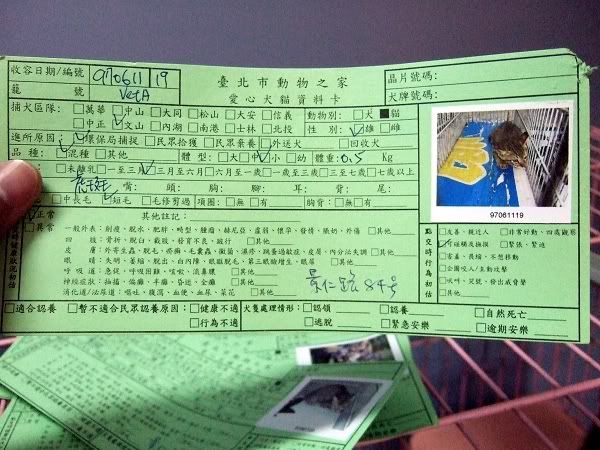 收容日期/編號 970611 19 臺北市動物之家 晶片號碼:
籠 號 VetA 愛心犬貓資料卡 犬牌號碼:
捕犬區隊: □萬華 □中山 □大同 □松山 □大安 □信義 動物別: □犬 ■貓
□中正 ✓文山 □內湖 □南港 □士林 □北投 性 別: ✓雄 □雌
進所原因: ✓環保局捕捉 □民眾拾獲 □民眾棄養 □外送犬 □回收犬
品 種: ✓混種 □其他 體 型: □大 □中 ✓小 □幼 體重: 0.5 Kg
□未離乳 □一至三月 ✓三月至六月 □六月至一歲 □一歲至三歲 □三至七歲 □七歲以上
虎斑 嘴: 頭: 胸: 腳: 耳: 背: 尾:
□中長毛 ✓短毛 □毛修剪過 項圈: □無 □有 胸背: □無 □有
97061119
✓正常 其他註記:
□異常 一般外表: 削瘦、脫水、肥胖、畸型、腫瘤、赫尼亞、虛弱、懷孕、發情、眼奶、外傷 □其他
四 肢: 骨折、脫臼、截肢、發育不良、跛行 □其他
皮 膚: 外寄生蟲、脫毛、疥癬、毛囊蟲、黴菌、濕疹、跳蚤過敏症、皮屑、內分泌失調 □其他
眼 睛: 失明、萎縮、脫出、白內障、眼瞼脫毛、第三眼瞼增生、眼屎 □其他
呼吸道: 急促、呼吸困難、咳嗽、流鼻膿 □其他
神經症狀: 抽搐、偏癱、半癱、昏迷、全癱 □其他
消化道/泌尿道: 嘔吐、腹瀉、血便、血尿、菜花 □其他
景仁街84号
點交時行為初估
□友善、親近人 □非常好動、四處觀察
✓可碰觸及撫摸 □緊張、緊迫
□害羞、畏縮、不想移動
□企圖咬人/主動攻擊
□吠叫、哭號、發出威脅聲
□其他
□適合認養 □暫不適合民眾認養原因: □健康不適 犬隻處理情形: □認領 □認養 □自然死亡
□行為不適 □逃脫 □緊急安樂 □逾期安樂